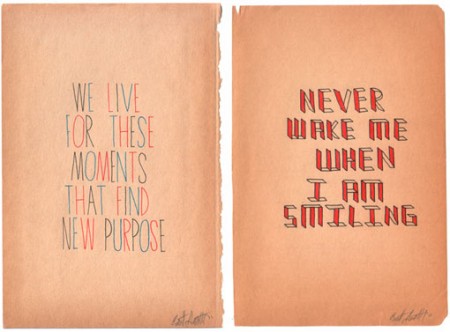 WE LIVE
FOR THESE
MOMENTS
THAT FIND
NEW PURPOSE
NEVER
WAKE ME
WHEN
I AM
SMILING